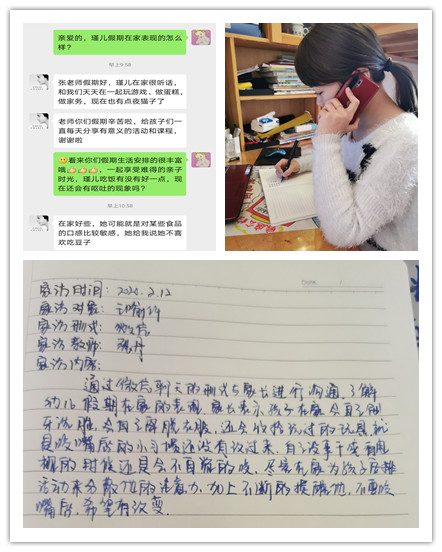 亲爱的，瑾儿假期在家表现的怎么
样？
早上9:58
张老师假期好，瑾儿在家很听话，
和我们天天在一起玩游戏，做蛋糕，
做家务，现在也有点夜猫子了
老师你们假期辛苦啦，给孩子们一
直每天分享有意义的活动和课程，
谢谢啦
看来你们假期生活安排的很丰富
哦，一起享受难得的亲子
时光，瑾儿吃饭有没有好一点，现
在还会有呕吐的现象吗？
早上10:58
在家好些，她可能就是对某些食品
的口感比较敏感，她给我说她不喜
欢吃豆子
家访时间：2020.2.12
家访对象：
家访形式：微信
家访教师：
家访内容：
通过微信聊天的形式与家长进行沟通，了解
幼儿假期在家的表现，家长表示，孩子在家会自己刷
牙洗脸，会自己穿脱衣服，还会收拾玩过的玩具，就
是咬嘴唇的小习惯还没有改过来，自己没事干或有情
绪的时候还是会不自觉的咬，尽量在家为孩子安排
活动来分散她的注意力，加上不断的提醒她，不要咬
嘴唇，希望有改变。